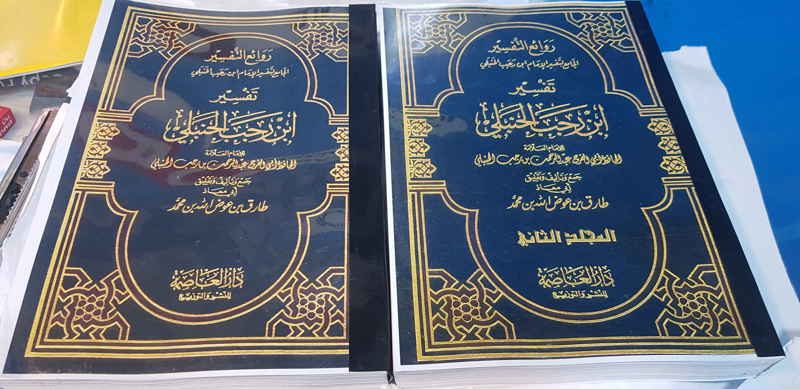 روائع التفسير
الجامع لتفسير الإمام ابن رجب الحنبلي
تفسير
ابن رجب الحنبلي
للإمام العلامة
الحافظ أبي الفرج عبد الرحمن بن رجب الحنبلي
جمع وتأليف وتعليق
أبي معاذ
طارق بن عوض الله بن محمد
دار العاصمة
للنشر والتوزيع
روائع التفسير
الجامع لتفسير الإمام ابن رجب الحنبلي
تفسير
ابن رجب الحنبلي
للإمام العلامة
الحافظ أبي الفرج عبد الرحمن بن رجب الحنبلي
جمع وتأليف وتعليق
أبي معاذ
طارق بن عوض الله بن محمد
المجلد الثاني
دار العاصمة
للنشر والتوزيع